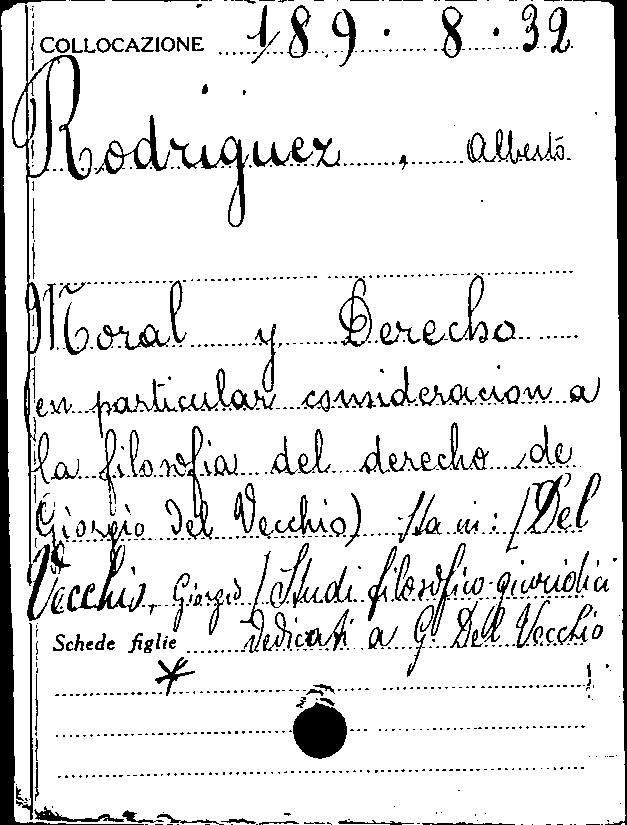 COLLOCAZIONE 189. 8. 32
Rodriguez, Alberto
Moral y Derecho
(en particular consideracion a
la filosofia del derecho de
Giorgio Del Vecchio) Sta in: [Del
Vecchio, Giorgio] Studi filosofico-giuridici
Schede figlie dedicati a G. Del Vecchio
*